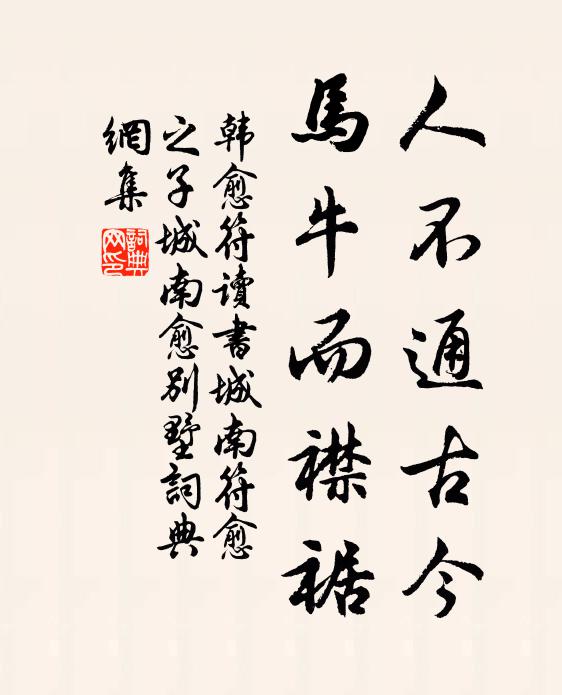 人不通古今
馬牛而襟裾
韩愈符读書城南符愈
之子城南愈别墅詞典
網集
詞典网印